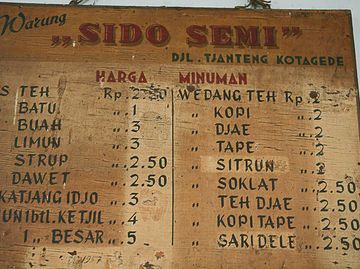 Warung
„SIDO SEMI”
DJL. TJANTENG KOTAGEDE
HARGA MINUMAN
S TEH Rp. 2.50 WEDANG TEH Rp. 2
BATU „. 1 „ KOPI „. 2
BUAH „. 3 „ DJAE „. 2
LIMUN „. 3 „ TAPE „. 2
STRUP „. 2.50 „ SITRUN „. 2
DAWET „. 2.50 „ SOKLAT „. 2.50
KATJANG IDJO „. 3 „ TEH DJAE „. 2.50
KETJIL „. 4 „ KOPI TAPE „. 2.50
1 „ BESAR „. 5 „ SARI DELE „. 2.50